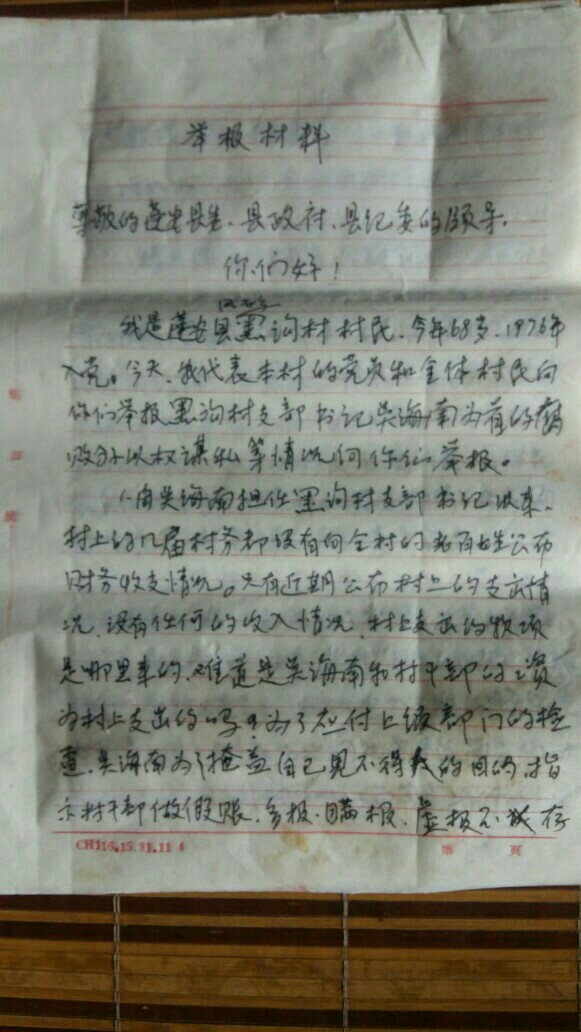 举报材料
尊敬的蓬安县委、县政府、县纪委的领导。
你们好！
我是蓬安县黑沟村村民、今年68岁、1976年
入党。今天、我代表本村的党员和全体村民向
你们举报黑沟村支部书记吴海南为首的
败分以权谋私等情况向你们举报。
八自吴海南担任黑沟村支部书记以来、
村上的几届村务都没有向全村的老百姓公布
财务收支情况。只有近期公布村上的支出情
况、没有任何的收入情况、村上支出的款项
是哪里来的、难道是吴海南和村干部的工资
为村上支出的吗？为了应付上级部门的检
查、吴海南为了掩盖自己见不得人的目的、指
示村干部做假账、多报、瞒报、虚报不成存
CH116.15.91.11 4
第 页